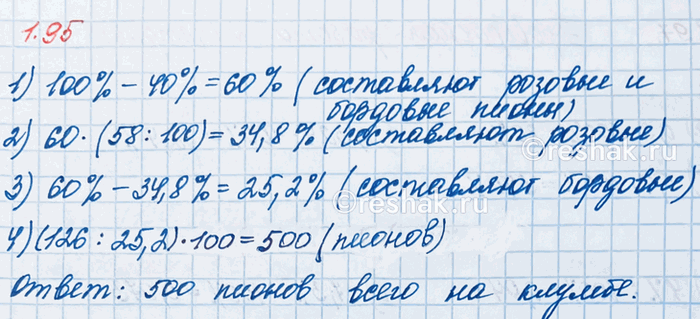 1.95
1) 100% - 40% = 60% (составляют розовые и
бордовые пионы)
2) 60 · (58 : 100) = 34,8% (составляют розовые)
3) 60% - 34,8% = 25,2% (составляют бордовые)
4) (126 : 25,2) · 100 = 500 (пионов)
Ответ: 500 пионов всего на клумбе.
reshak.ru
reshak.ru